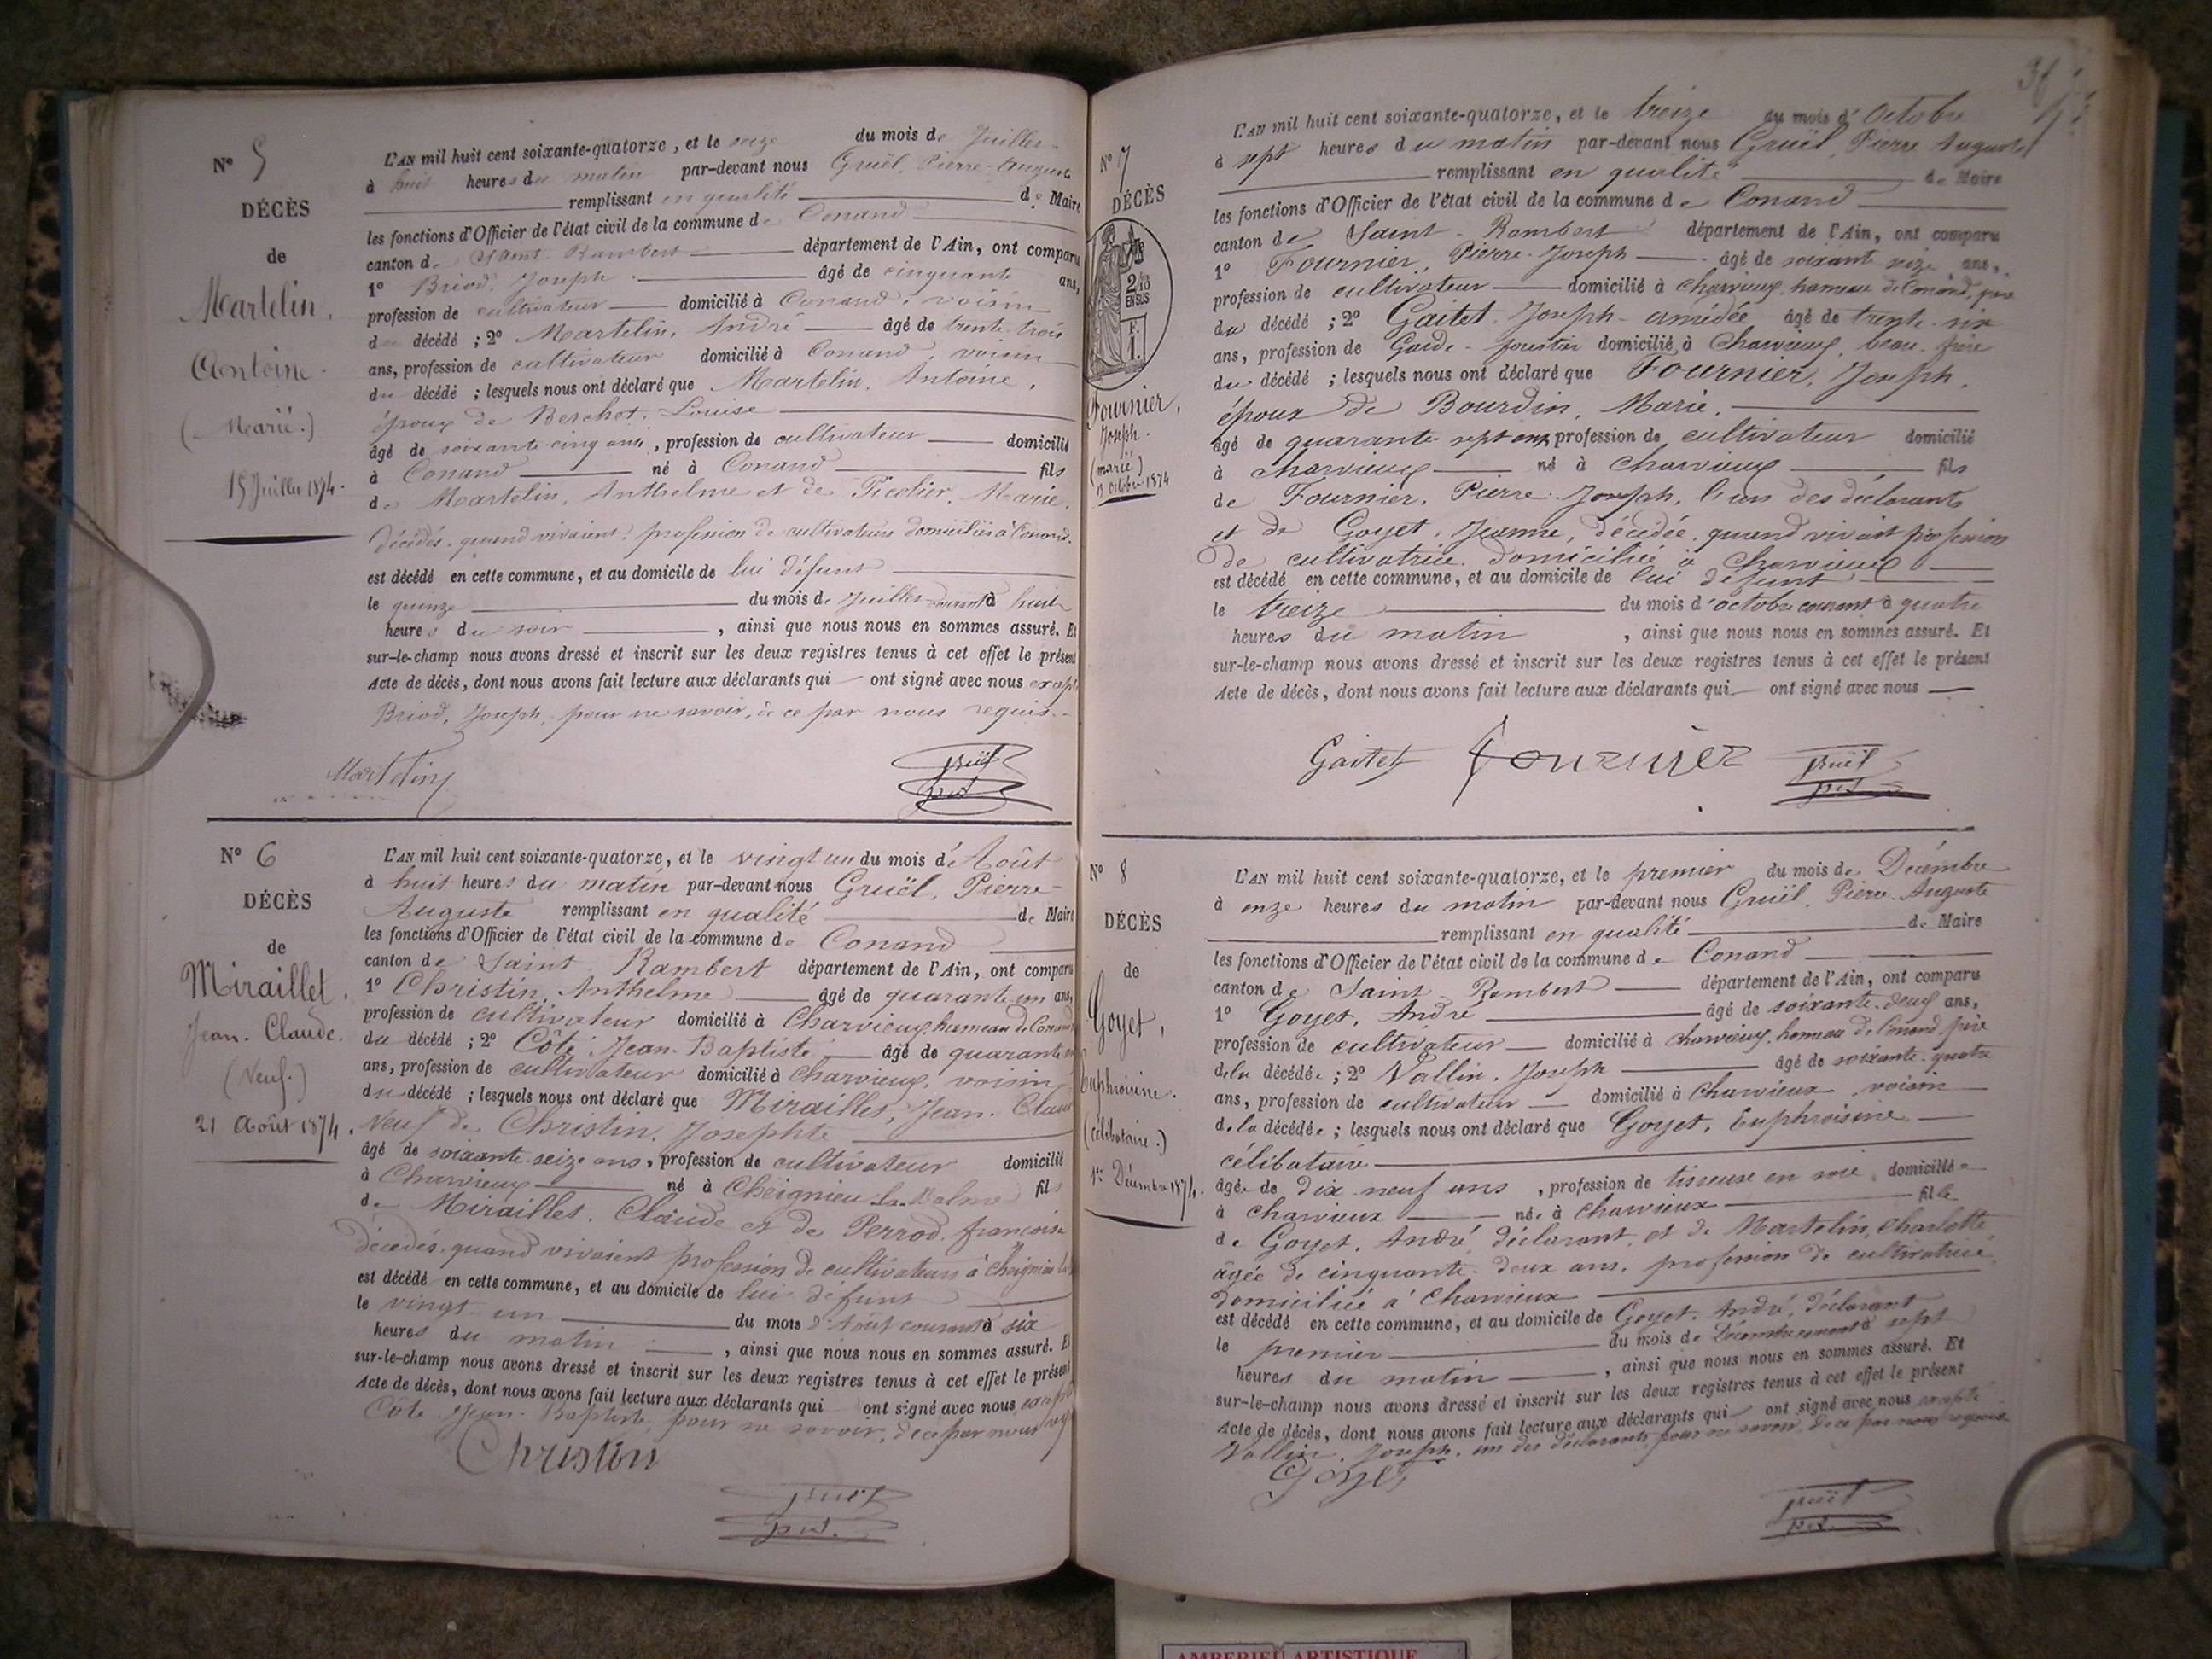 N° 5
DÉCÈS
de
Martelin,
Antoine.
(Marié.)
15 Juillet 1874.
L'AN mil huit cent soixante-quatorze, et le seize du mois de Juillet
à huit heures du matin par-devant nous Gruël, Pierre-Auguste
remplissant en qualité de Maire
les fonctions d'Officier de l'état civil de la commune de Conand
canton de Saint-Rambert département de l'Ain, ont comparu
1° Briod, Joseph âgé de cinquante ans,
profession de cultivateur domicilié à Conand, voisin
du décédé ; 2° Martelin, André âgé de trente-trois
ans, profession de cultivateur domicilié à Conand, voisin
du décédé ; lesquels nous ont déclaré que Martelin, Antoine,
époux de Berchet, Louise
âgé de soixante-cinq ans, profession de cultivateur domicilié
à Conand né à Conand fils
de Martelin, Anthelme et de Marie,
décédés, quand vivaient profession de cultivateurs domiciliés à Conand.
est décédé en cette commune, et au domicile de lui défunt
le quinze du mois de Juillet courant à huit
heures du soir, ainsi que nous nous en sommes assuré. Et
sur-le-champ nous avons dressé et inscrit sur les deux registres tenus à cet effet le présent
Acte de décès, dont nous avons fait lecture aux déclarants qui ont signé avec nous excepté
Briod, Joseph, pour ne savoir, de ce par nous requis.
Martelin
Gruël
N° 6
DÉCÈS
de
Miraillet,
Jean-Claude.
(Veuf.)
21 Août 1874.
L'AN mil huit cent soixante-quatorze, et le vingt un du mois d'Août
à huit heures du matin par-devant nous Gruël, Pierre-
Auguste remplissant en qualité de Maire
les fonctions d'Officier de l'état civil de la commune de Conand
canton de Saint Rambert département de l'Ain, ont comparu
1° Christin, Anthelme âgé de quarante un ans,
profession de cultivateur domicilié à Charvieux, hameau de Conand
du décédé ; 2° Côte, Jean-Baptiste âgé de quarante
ans, profession de cultivateur domicilié à Charvieux, voisin
du décédé ; lesquels nous ont déclaré que Miraillet, Jean-Claude
Veuf de Christin, Josephte
âgé de soixante-seize ans, profession de cultivateur domicilié
à Charvieux né à Cheignieu-La-Balme fils
de Miraillet, Claude et de Perrod, françoise
décédés, quand vivaient profession de cultivateurs à Cheignieu
est décédé en cette commune, et au domicile de lui défunt
le vingt-un du mois d'Août courant à six
heures du matin, ainsi que nous nous en sommes assuré. Et
sur-le-champ nous avons dressé et inscrit sur les deux registres tenus à cet effet le présent
Acte de décès, dont nous avons fait lecture aux déclarants qui ont signé avec nous excepté
Côte, Jean-Baptiste, pour ne savoir, de ce par nous
Christin
Gruël
N° 7
DÉCÈS
2/10
EN SUS
F.
1.
Fournier,
Joseph.
(marié)
13 Octobre 1874
L'AN mil huit cent soixante-quatorze, et le treize du mois d'Octobre
à sept heures du matin par-devant nous Gruël, Pierre Auguste
remplissant en qualité de Maire
les fonctions d'Officier de l'état civil de la commune de Conand
canton de Saint-Rambert département de l'Ain, ont comparu
1° Fournier, Pierre-Joseph âgé de soixante-seize ans,
profession de cultivateur domicilié à Charvieux, hameau de Conand, père
du décédé ; 2° Gaitet, Joseph-amédée âgé de trente-six
ans, profession de Garde-forestier domicilié à Charvieux, beau-frère
du décédé ; lesquels nous ont déclaré que Fournier, Joseph,
époux de Bourdin, Marie,
âgé de quarante-sept ans, profession de cultivateur domicilié
à Charvieux né à Charvieux fils
de Fournier, Pierre-Joseph, l'un des déclarants
et de Goyet, Jeanne, décédée, quand vivait profession
de cultivatrice, domiciliée à Charvieux
est décédé en cette commune, et au domicile de lui défunt
le treize du mois d'octobre courant à quatre
heures du matin, ainsi que nous nous en sommes assuré. Et
sur-le-champ nous avons dressé et inscrit sur les deux registres tenus à cet effet le présent
Acte de décès, dont nous avons fait lecture aux déclarants qui ont signé avec nous
Gaitet fournier Gruël
N° 8
DÉCÈS
de
Goyet,
Euphroisine.
(célibataire.)
1er Décembre 1874.
L'AN mil huit cent soixante-quatorze, et le premier du mois de Décembre
à onze heures du matin par-devant nous Gruël, Pierre-Auguste
remplissant en qualité de Maire
les fonctions d'Officier de l'état civil de la commune de Conand
canton de Saint-Rambert département de l'Ain, ont comparu
1° Goyet, André âgé de soixante-deux ans,
profession de cultivateur domicilié à Charvieux, hameau de Conand, père
de la décédée ; 2° Vallin, Joseph âgé de soixante-quatre
ans, profession de cultivateur domicilié à Charvieux, voisin
de la décédée ; lesquels nous ont déclaré que Goyet, Euphroisine
célibataire
âgée de dix-neuf ans, profession de tisseuse en soie, domiciliée
à Charvieux née à Charvieux fille
de Goyet, André, déclarant, et de Martelin, Charlotte
âgée de cinquante-deux ans, profession de cultivatrice,
domiciliée à Charvieux
est décédé en cette commune, et au domicile de Goyet, André, déclarant
le premier du mois de Décembre courant à sept
heures du matin, ainsi que nous nous en sommes assuré. Et
sur-le-champ nous avons dressé et inscrit sur les deux registres tenus à cet effet le présent
Acte de décès, dont nous avons fait lecture aux déclarants qui ont signé avec nous excepté
Vallin, Joseph, un des déclarants, pour ne savoir, de ce par nous requis
Goyet
Gruël
AMBERIEU ARTISTIQUE